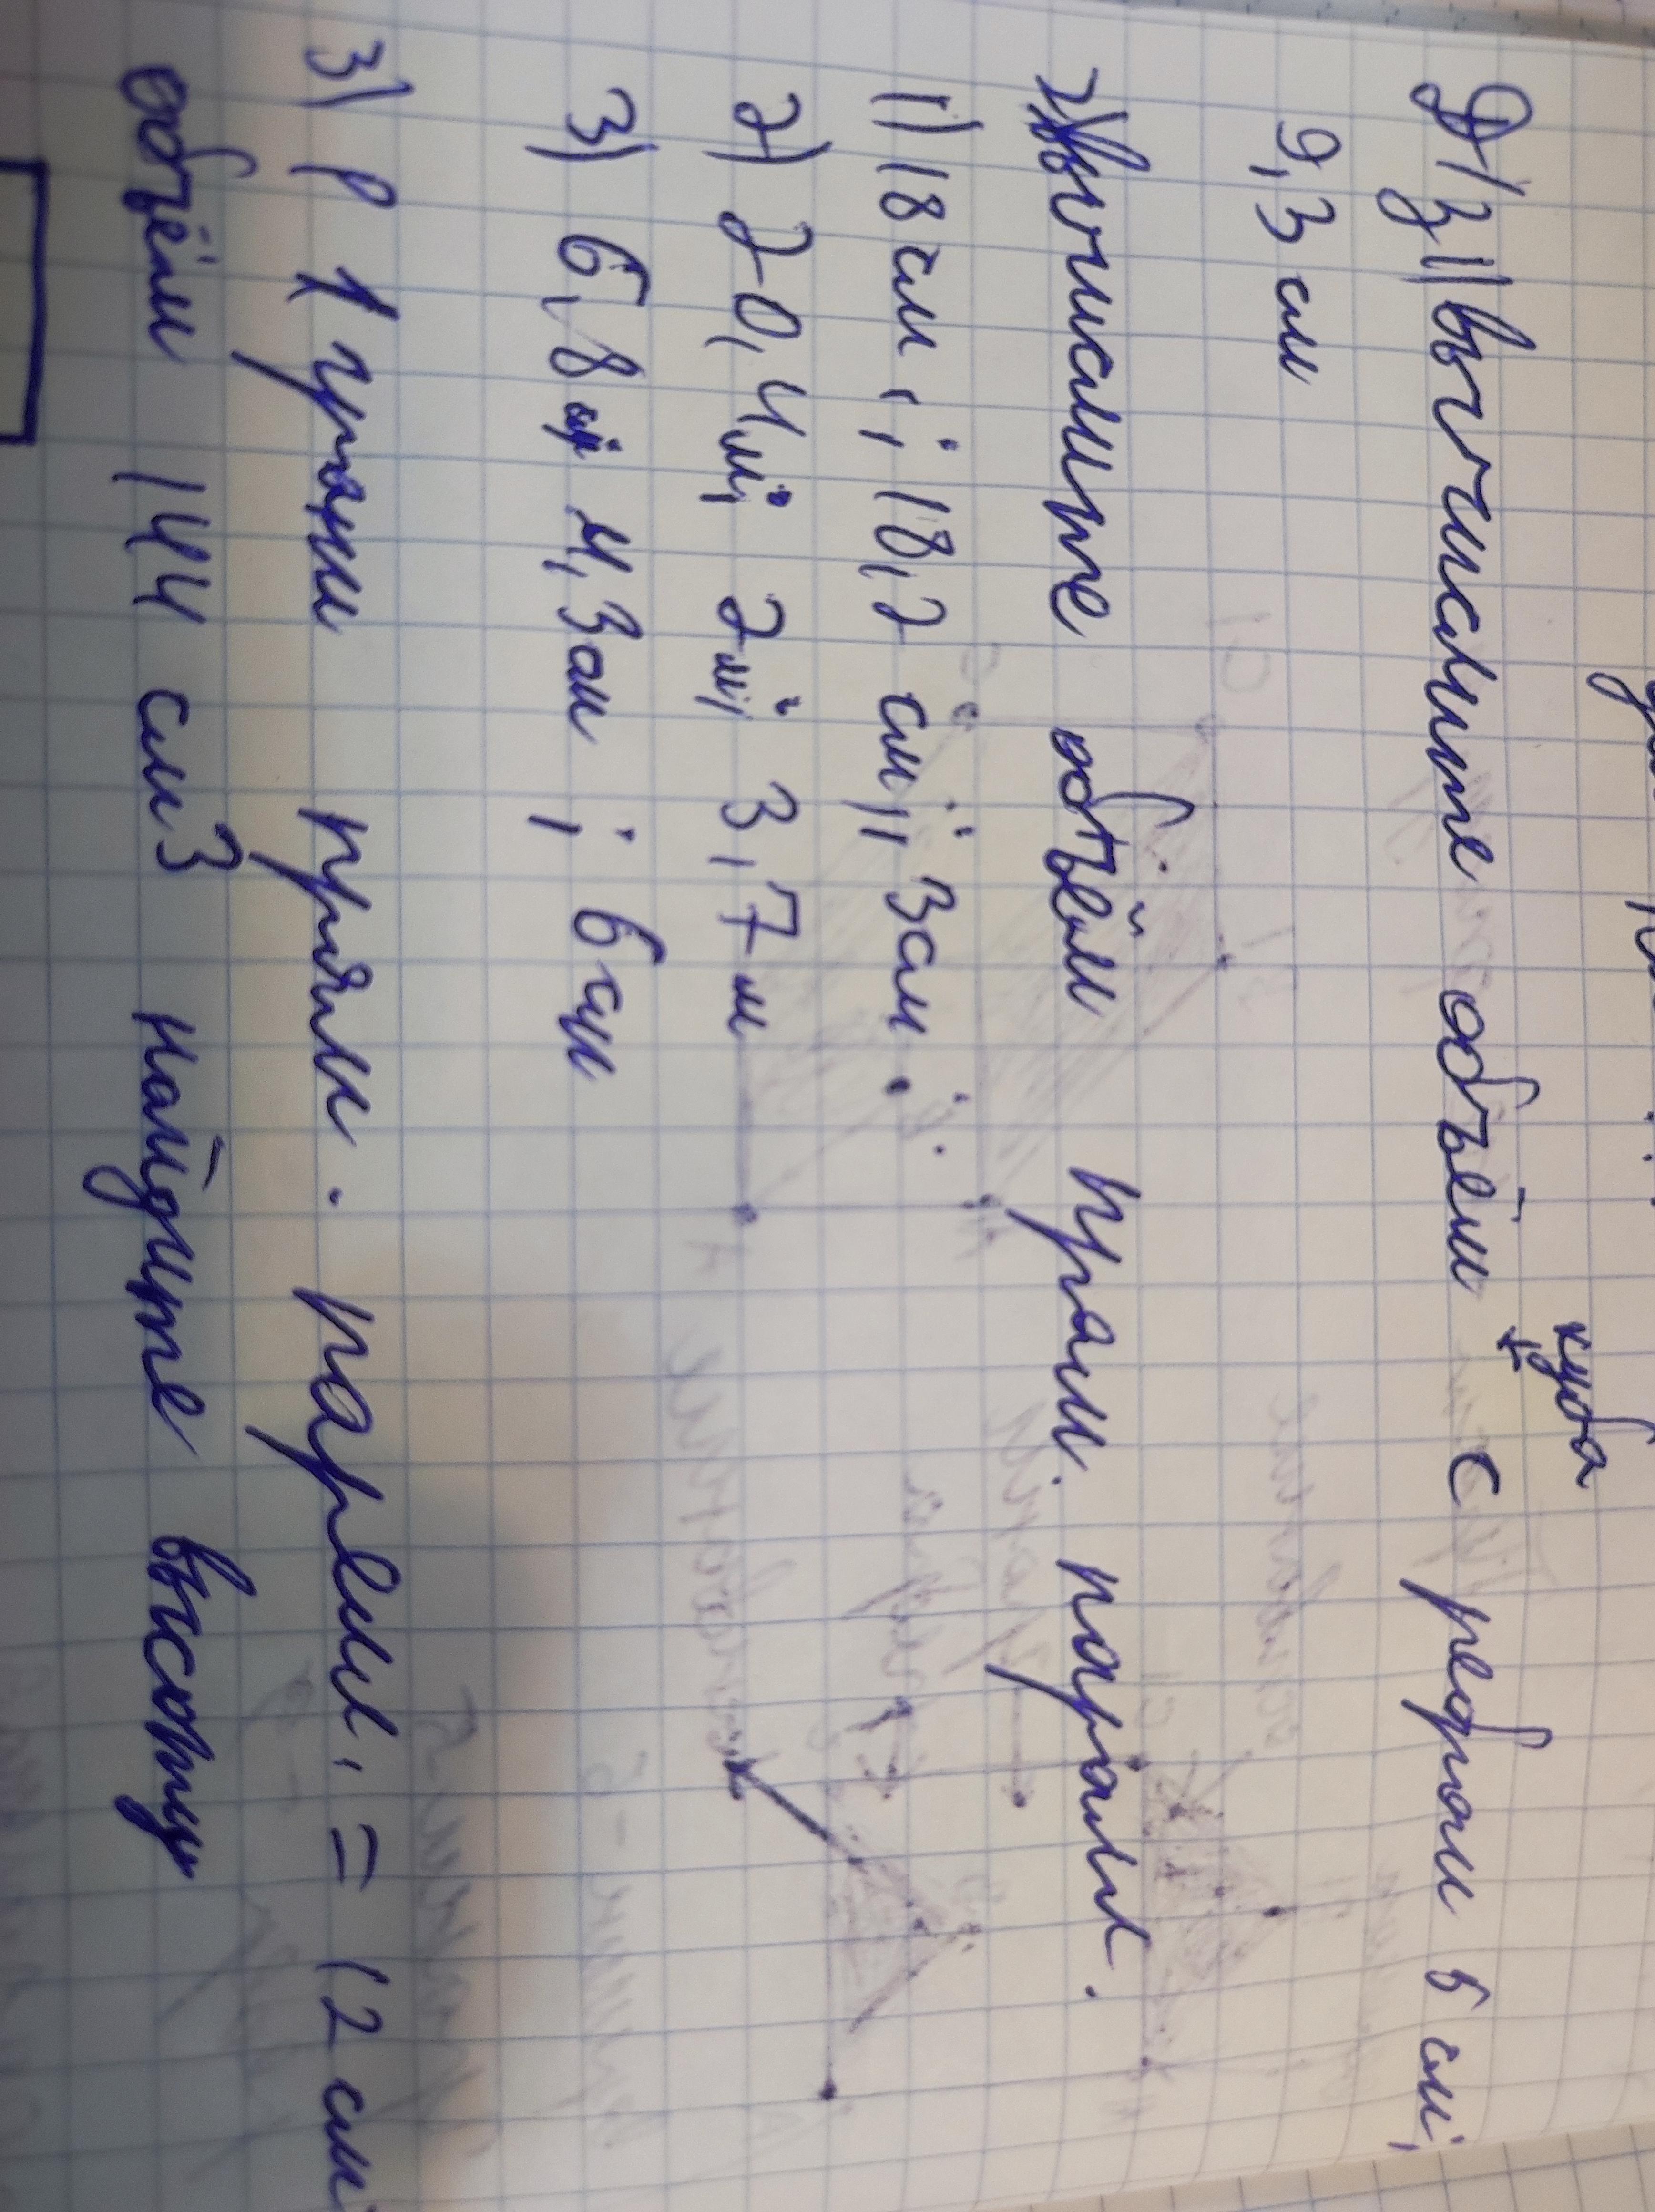 куба
Д/з 1) Вычислите объём с ребром 6 см;
9,3 см
2) Вычислите объём прям. парал.
1) 18 см; 18,2 см; 3 см.
2) 20,4 м; 2 м; 3,7 м
3) 6,8 4,3 см; 6 см
3) P 1 грани прям. паралл. = 12 см
объём 144 см3 найдите высоту